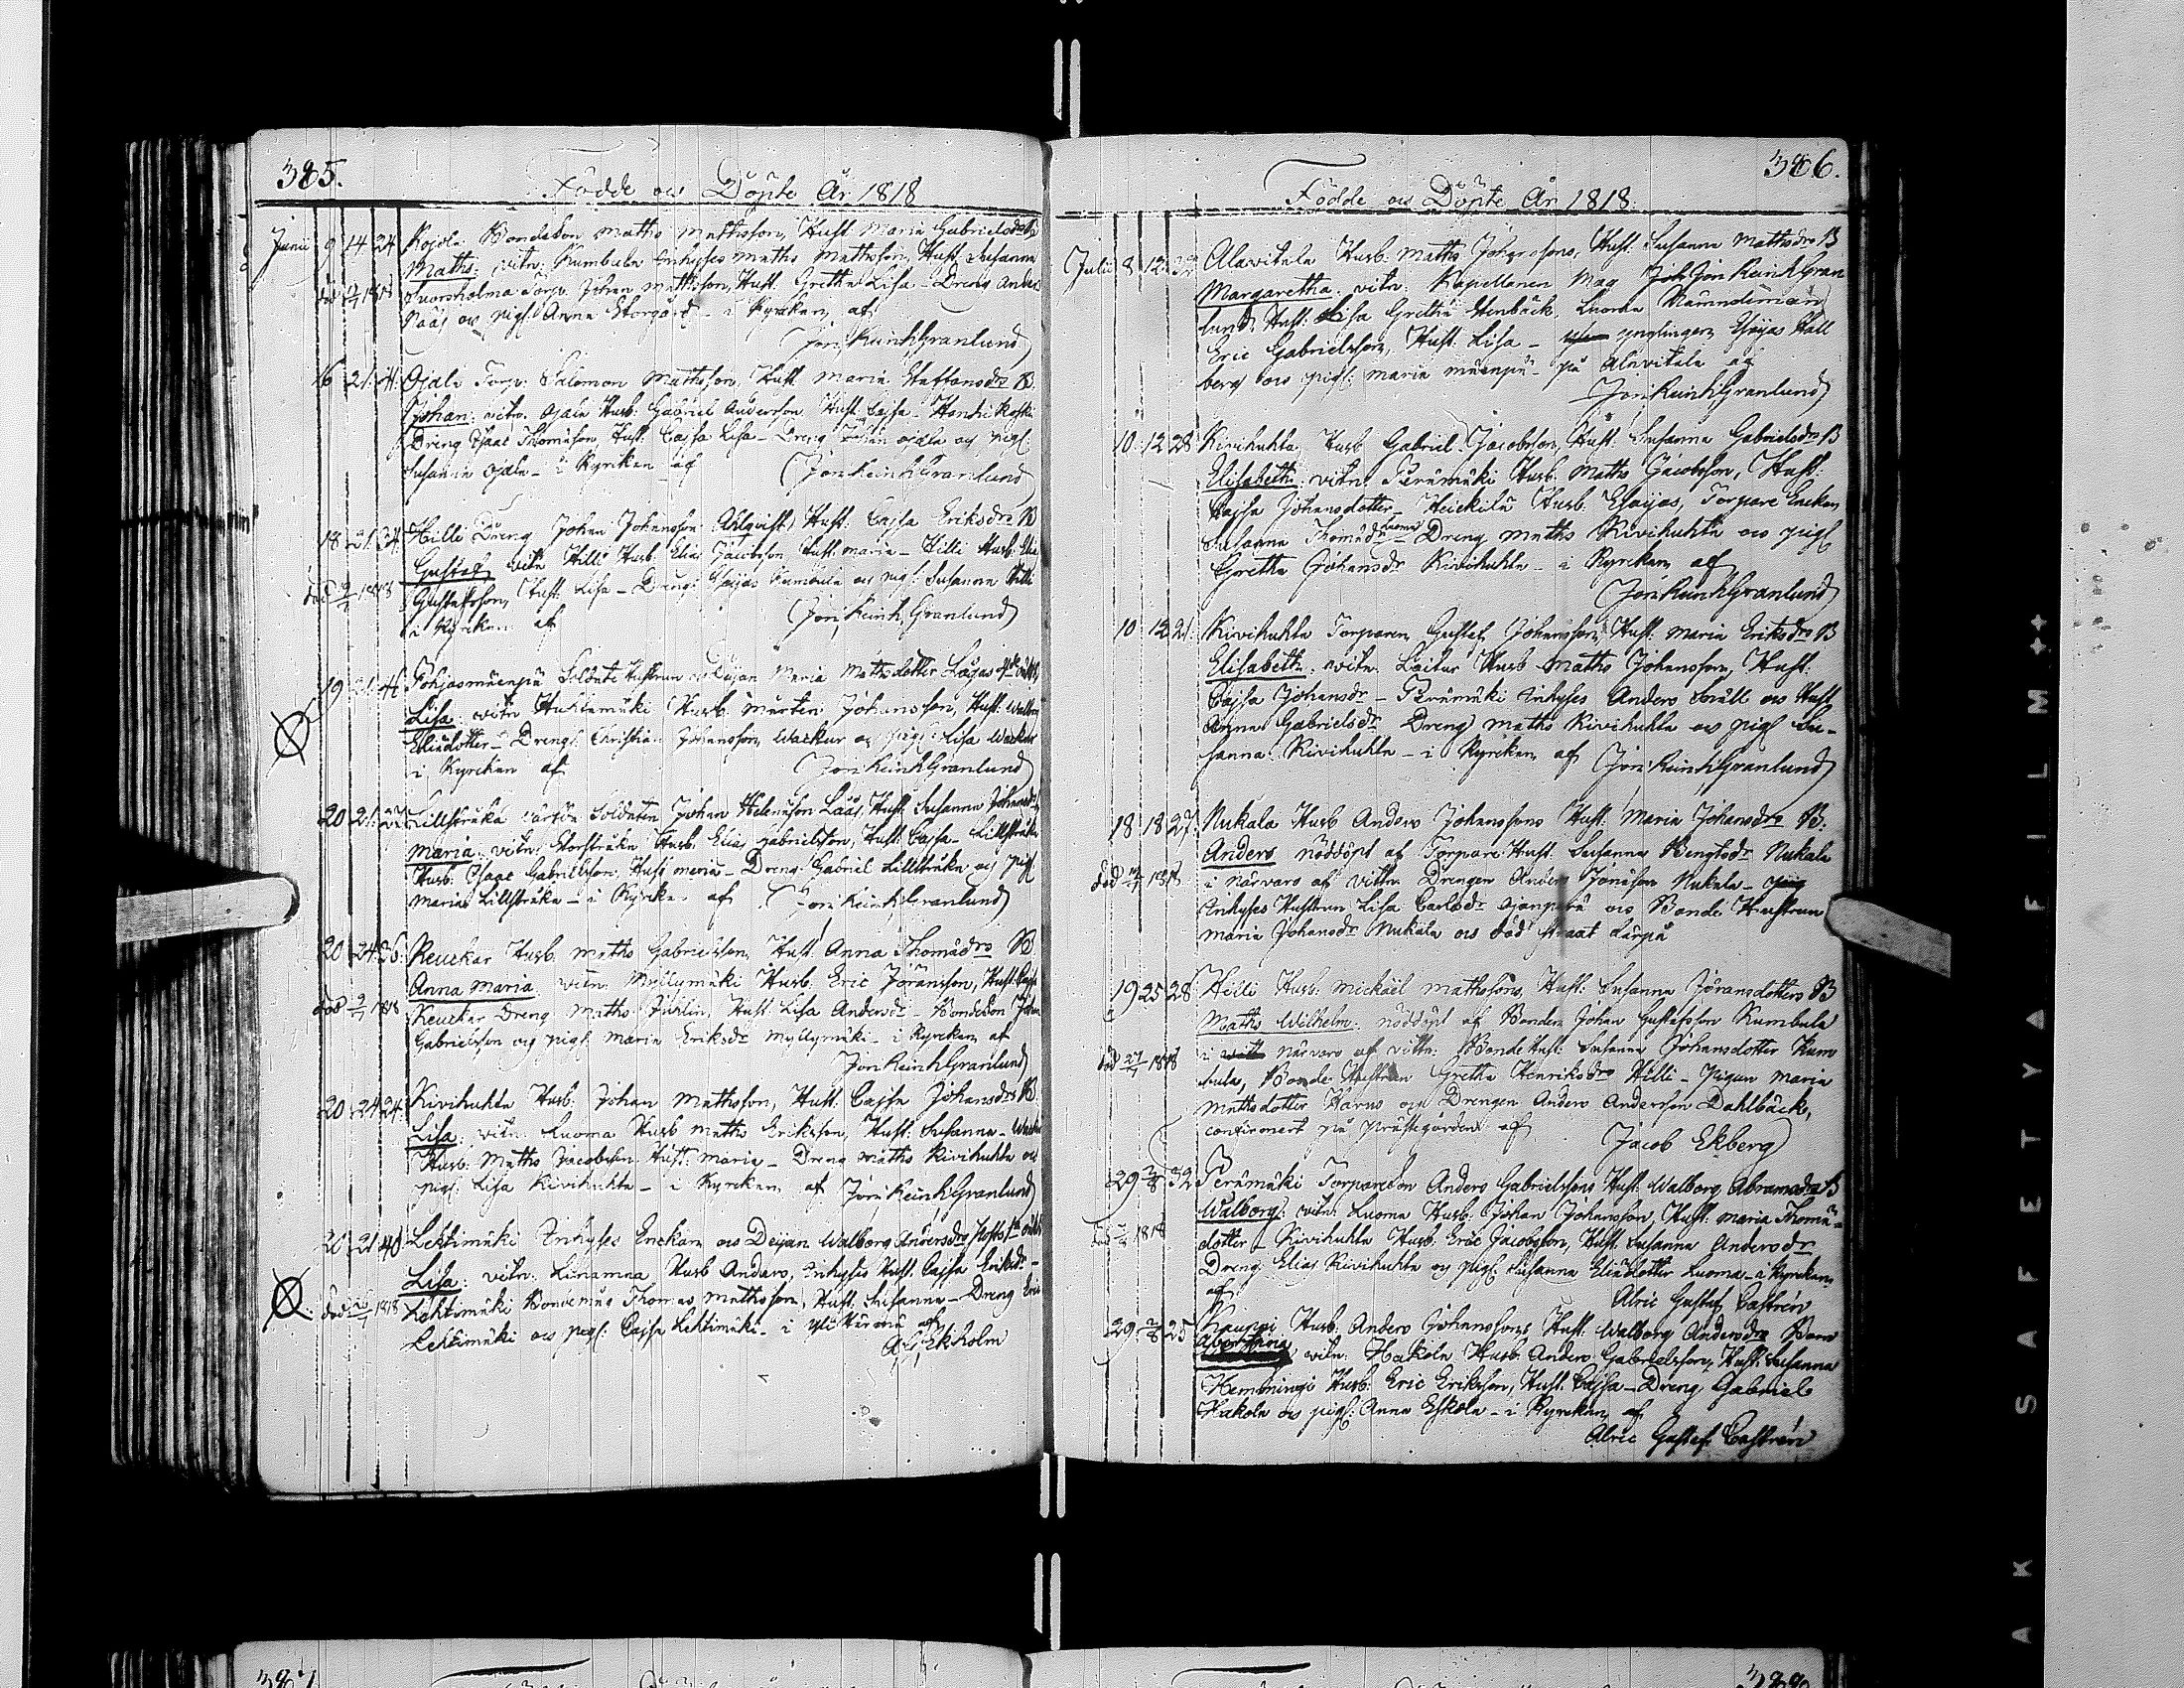 385.
Födde och Döpte År 1818
Junii 9 14 24 Kojola Bondeson Matts Mattsson, Hust. Maria Gabrielsdotr
Matts: vitn: Kumbula Inhyses Matts Mattsson, Hust. Susanna
död 1818 Torp. Johan Mattsson, Hust. Greta Lisa - Dreng Anders
Nääs och pig. Anna Storgård - i Kyrckan af
Jon: Reinh Granlund
16 21 Ojala Torp: Salomon Mattsson, Hust. Maria Staffansdr B.
Johan: vitn. Ojala Husb: Gabriel Andersson Hust. Cajsa - Handrikoski
Dreng Isaac Thomasson, Hust: Cajsa Lisa - Dreng Johan Ojala och pig:
Susanna Ojala - i Kyrckan af Jon: Reinh Granlund
18 21 34 Hilli Dreng Johan Johansson Ahlqvist, Hust: Cajsa Eriksdr B
Gustaf, vitn Hilli Husb: Elias Jacobsson Hust. Maria - Hilli Husb: Elias
död 1818 Gustafsson, Hust: Lisa - Dreng: Esaias Kumbula och pig: Susanna Hilli
i Kyrckan af Jon: Reinh Granlund
19 21 Pohjasmäenpä Soldate Hustrun och Deijan Maria Mattsdotter
Lisa: vitn Huhtamäki Husb: Mårten Johansson, Hust. Walborg
Eliædotter - Dreng: Christian Johansson Wackur och pig: Lisa Wackur
i Kyrckan af Jon: Reinh Granlund
20 21 27 Lillstråka Soldaten Johan Helenason Lääs, Hust. Susanna Johansdr
Maria: vitn: Storstråka Husb: Elias Gabrielsson, Hust. Cajsa - Lillstråka
Husb: Isaac Gabrielsson, Hust. Maria - Dreng: Gabriel Lillstråka och pig:
Maria Lillstråka - i Kyrckan af Jon: Reinh Granlund
20 24 26: Keuckar Husb. Matts Gabrielsson, Hust. Anna Thomædr B
Anna Maria: vitn. Myllymäki Husb: Eric Jöransson, Hust. Cajsa
död 1818 Keuckar Dreng Matts Hust. Lisa Andersdr - Bondeson Johan
Gabrielsson och pig: Maria Eriksdr Myllymäki - i Kyrckan af
Jon: Reinh Granlund
20 24 24: Kivihuhta Husb: Johan Mattsson, Hust. Cajsa Johansdr B.
Lisa: vitn: Luoma Husb Matts Eriksson, Hust: Susanna - Wackur
Husb: Matts Jacobsson Hust: Maria - Dreng Matts Kivihuhta och
pig: Lisa Kivihuhta - i Kyrckan af Jon: Reinh Granlund
21 21 40 Lehtimäki Inhyses Enckan och Deijan Walborg Andersdr
Lisa: vitn: Liinamaa Husb Anders, Inhyses Hust. Cajsa Eriksdr -
död 1818 Lehtimäki Bondemåg Thomas Mattsson, Hust. Susanna - Dreng Eric
Lehtimäki och pig: Cajsa Lehtimäki - i Ylihärmä af
A. G. Ekholm
386.
Födde och Döpte År 1818.
Julii 8 12 32 Alavitala Husb: Matts Jöransons, Hust: Susanna Mattsdr B
Margaretha: vitn: Kapellanen Mag Joh Jon Reinh Gran
lund, Hust: Lisa Greta Stenbäck, Luoma Nämndeman
Eric Gabrielsson, Hust. Lisa - ynglingen Esaias Hall
berg och pig: Maria Mäenpä - på Alavitala af
Jon: Reinh Granlund
10 12 28 Kivihuhta, Husb Gabriel Jacobsson, Hust. Susanna Gabrielsdr B
Elisabeth: vitn: Perämäki Husb. Matts Jacobsson, Hust:
Cajsa Johansdotter - Heickilä Husb. Esaijas, Torpare Enckan
Susanna Thomædr Luoma - Dreng Matts Kivihuhta och pig:
Greta Johansdr Kivihuhta - i Kyrckan af
Jon: Reinh Granlund
10 12 21. Kivihuhta Torparen Gustaf Johansson, Hust: Maria Eriksdr B
Elisabeth: vitn. Husb Matts Johansson, Hust.
Cajsa Johansdr - Perämäki Inhyses Anders och Hust.
Anna Gabrielsdr Dreng Matts Kivihuhta och pig: Su-
sanna Kivihuhta - i Kyrckan af Jon: Reinh Granlund
18 18 27. Nukala Husb Anders Johanssons Hust. Maria Johansdr B:
Anders nöddöpt af Torpare Hust. Susanna Bengtsdr Nukala
död 1818 i närvaro af vittn. Drengen Anders Jonæson Nukala -
Inhyses Hustrun Lisa Carlsdr Ojanperä och Bonde Hustrun
Maria Johansdr Nukala och död straxt därpå
19 25 28 Hilli Husb: Mickäel Mattsons, Hust: Susanna Jöransdotters B
Matts Wilhelm: nöddöpt af Bonden Johan Gustafsson Kumbula
död 27/7 1818 i närvaro af vittn: BondeHust: Susanna Johansdotter Kum
bula, Bonde Hustrun Greta Henriksdr Hilli - pigan Maria
Mattsdotter Harus och Drengen Anders Andersson Dahlbäck,
confirmert på Prästegården af Jacob Ekberg
29 2/8 32 Perämäki Torpareson Anders Gabrielssons Hust: Walborg Abramsdr B
Walborg: vitn. Luoma Husb. Johan Johansson, Hust: Maria Thomæ-
död 1818 dotter - Kivihuhta Husb. Eric Jacobsson, Hust. Susanna Andersdr
Dreng Elias Kivihuhta och pig: Susanna Eliædotter Luoma - i Kyrckan
af Alric Gustaf Castrén
29 2/8 25 Kauppi Husb: Anders Johanssons, Hust: Walborg Andersdr Barn
vitn: Hakola Husb: Anders Gabrielsson, Hust. Susanna
Hemmingi Husb: Eric Eriksson, Hust. Cajsa - Dreng Gabriel
Hakola och pig: Anna Eskola - i Kyrckan af
Alric Gustaf Castrén
AK SAFETY FILM
387